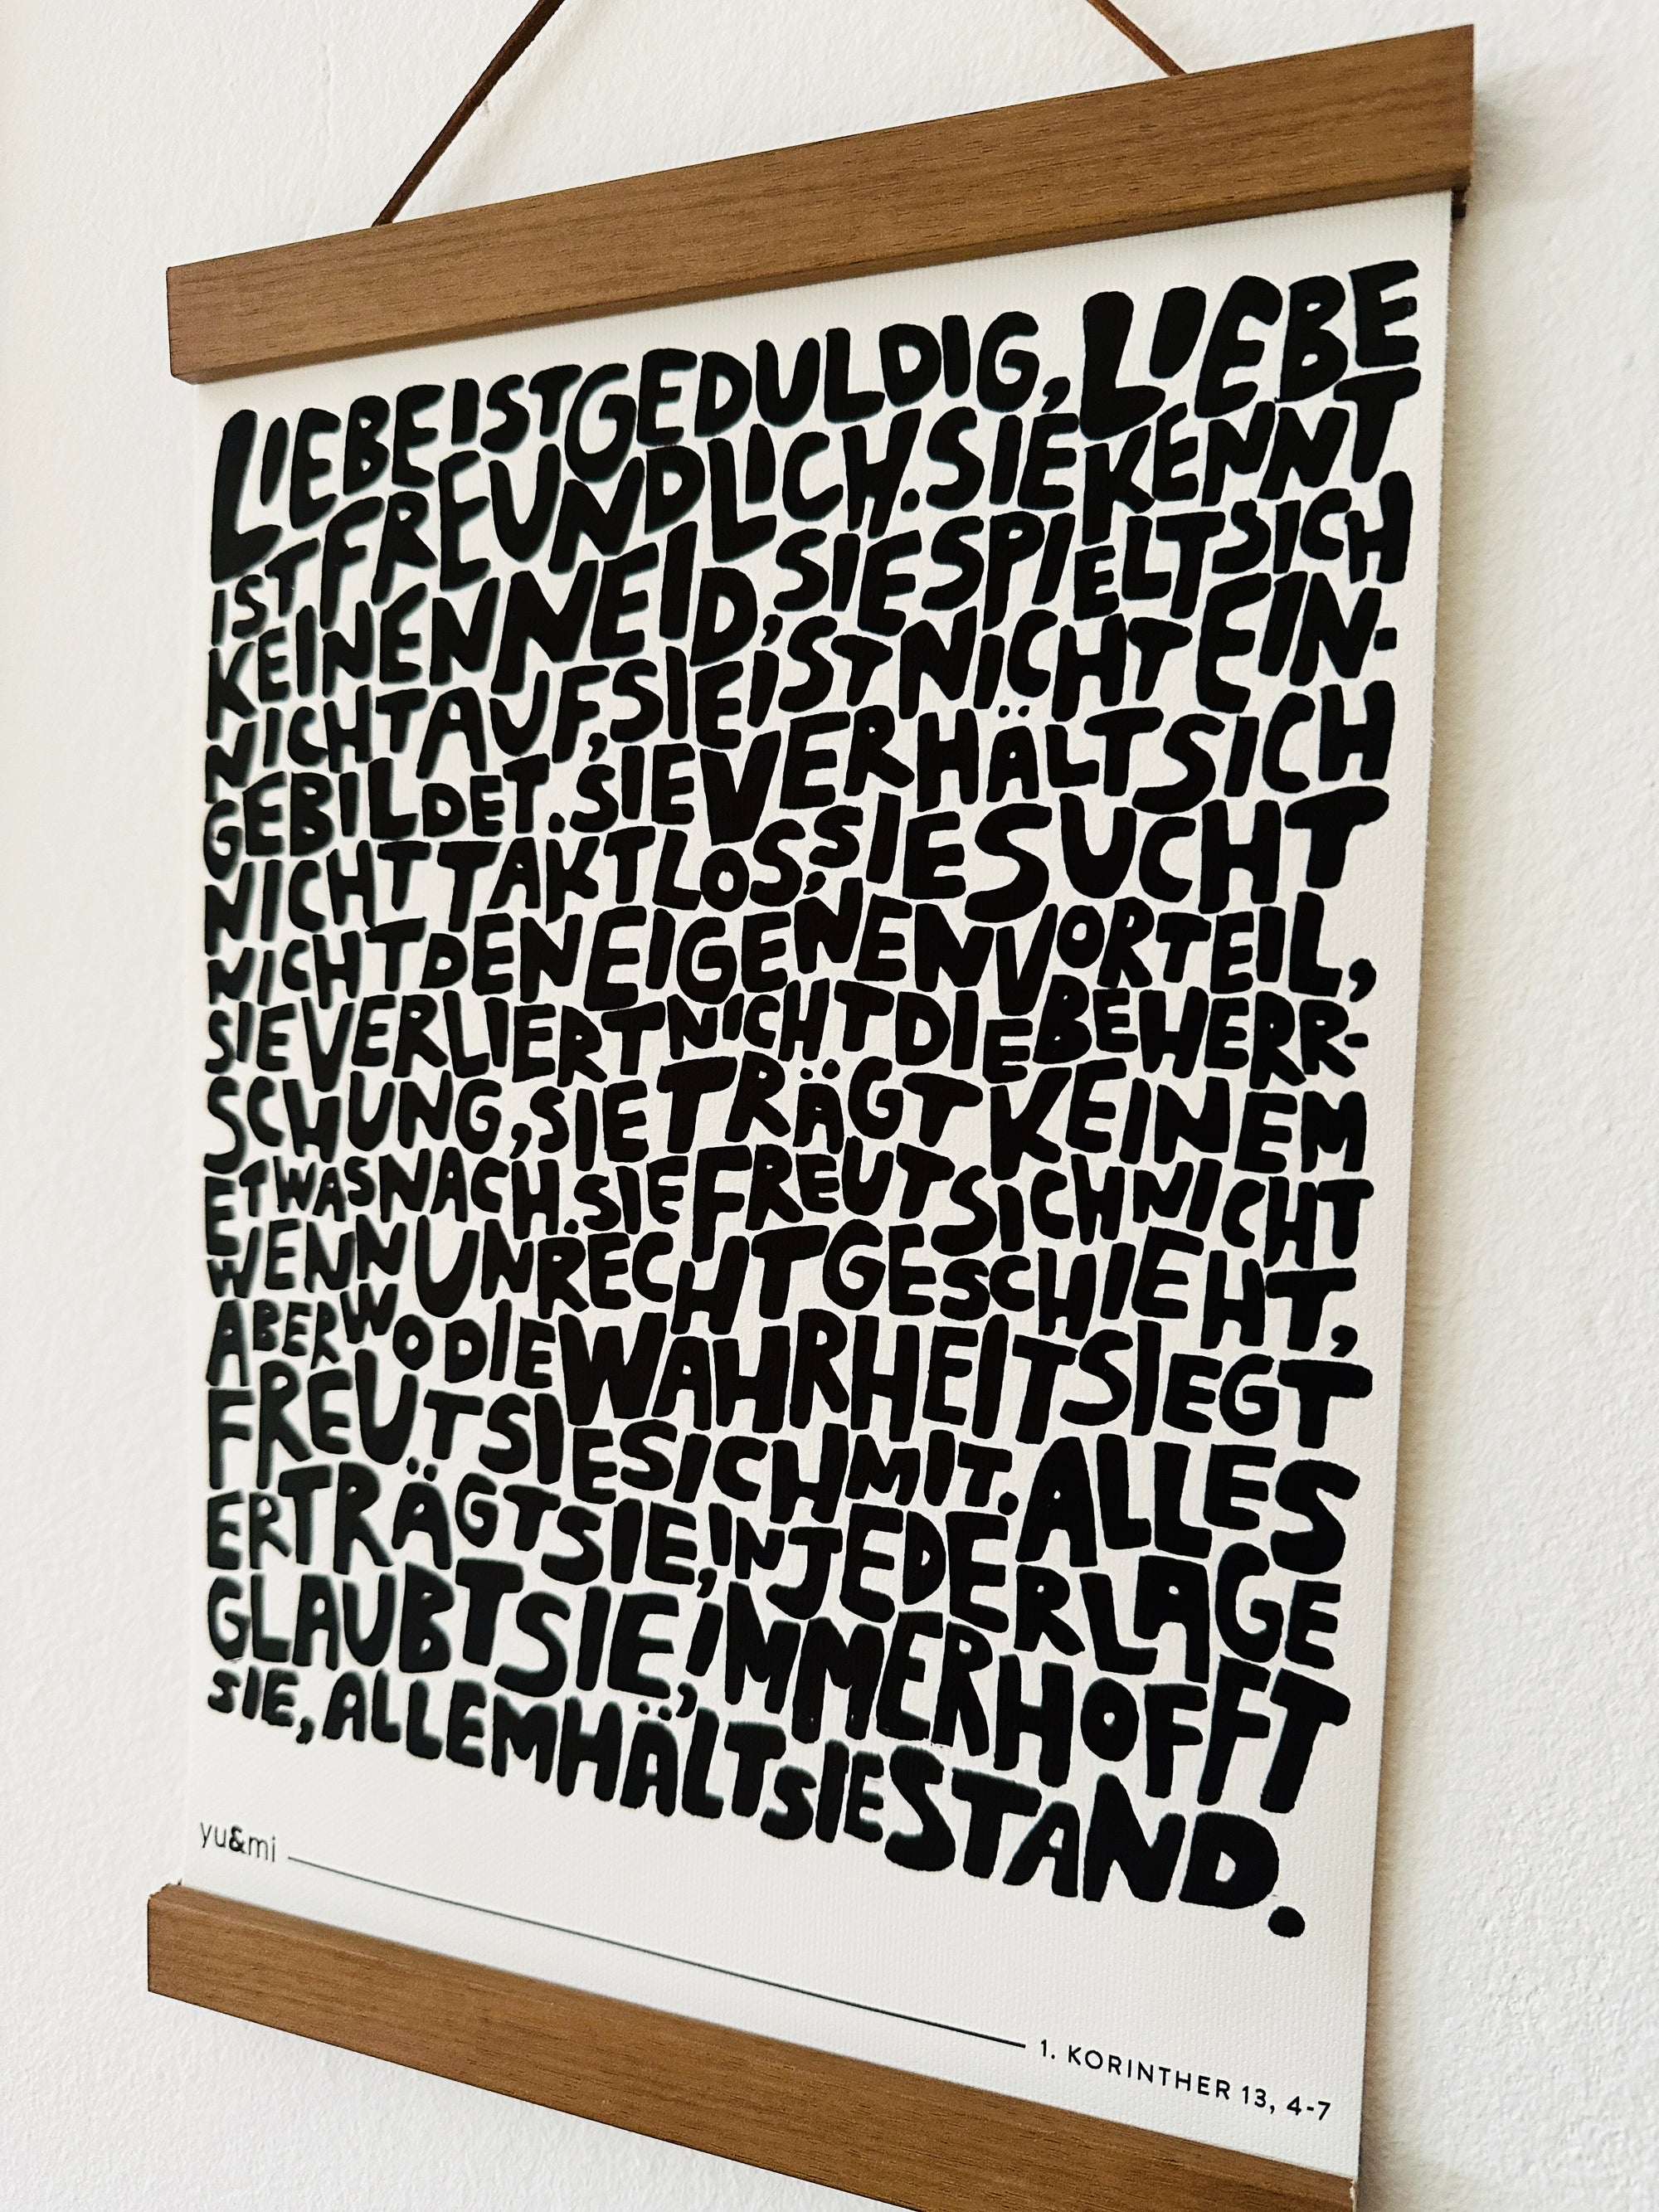 LIEBE IST GEDULDIG, LIEBE
IST FREUNDLICH. SIE KENNT
KEINEN NEID, SIE SPIELT SICH
NICHT AUF, SIE IST NICHT EIN-
GEBILDET. SIE VERHÄLT SICH
NICHT TAKTLOS, SIE SUCHT
NICHT DEN EIGENEN VORTEIL,
SIE VERLIERT NICHT DIE BEHERR-
SCHUNG, SIE TRÄGT KEINEM
ETWAS NACH. SIE FREUT SICH NICHT
WENN UNRECHT GESCHIEHT,
ABER WO DIE WAHRHEIT SIEGT
FREUT SIE SICH MIT. ALLES
ERTRÄGT SIE, IN JEDER LAGE
GLAUBT SIE, IMMER HOFFT
SIE, ALLEM HÄLT SIE STAND.
yu&mi
1. KORINTHER 13, 4-7